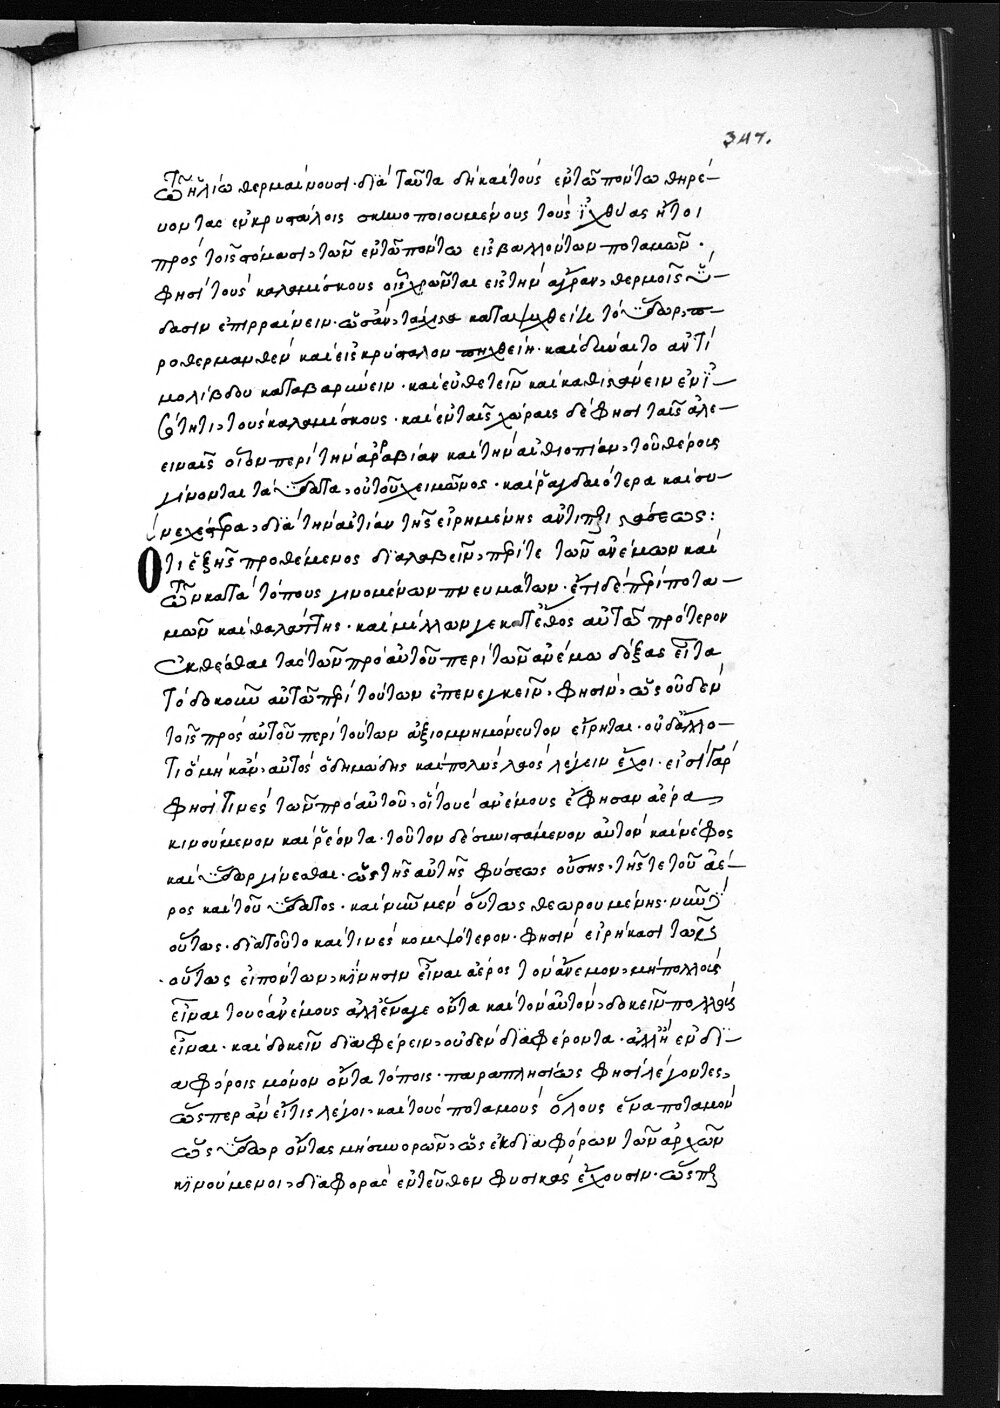 347.
τῷ ἡλίῳ θερμαίνουσι. διὰ ταῦτα δὴ καὶ τοὺς ἐν τῷ πόντῳ θηρεύ-
οντας ἐν κρυστάλοις σκηνοποιουμένους τοὺς ἰχθύας ἤτοι
πρὸς τοῖς στόμασι, τῶν ἐν τῷ πόντῳ εἰσβαλλόντων ποταμῶν.
φησὶ τοὺς καλαμίσκους οἷς χρῶνται εἰς τὴν ἄγραν, θερμοῖς ὕ-
δασιν ἐπιρραίνειν. ὡς ἂν, καταψυχθείη τὸ ὕδωρ, π-
ροθερμανθὲν καὶ εἰς κρύσταλον πηχθείη. καὶ δύναιτο ἀντὶ
μολίβδου καταβαρύνειν. καὶ εὐθετεῖν καὶ καθιστάνειν ἐν ἰ-
θύτητι, τοὺς καλαμίσκους. καὶ ἐν ταῖς χώραις δέ φησι ταῖς ἀλε-
ειναῖς οἷον περὶ τὴν ἀρραβίαν καὶ τὴν αἰθιοπίαν, τοῦ θέρους
γίνονται τὰ ὕδατα, οὐ τοῦ χειμῶνος. καὶ ῥαγδαιότερα καὶ συ-
νεχέστερα, διὰ τὴν αἰτίαν τῆς εἰρημένης ἀντιπεριστάσεως:
Ὅτι ἑξῆς προθέμενος διαλαβεῖν, περί τε τῶν ἀνέμων καὶ
τῶν κατὰ τόπους γινομένων πνευμάτων. ἔτι δὲ περὶ ποτα-
μῶν καὶ θαλάττης. καὶ μέλλων γε κατ' ἔθος αὐτῷ πρότερον
ἐκθέσθαι τὰς τῶν πρὸ αὐτοῦ περὶ τῶν ἀνέμω δόξας εἶτα
τὸ δοκοῦν αὐτῷ περὶ τούτων ἐπενεγκεῖν, φησὶν, ὡς οὐδὲν
τοῖς πρὸς αὐτοῦ περὶ τούτων ἀξιομνημόνευτον εἴρηται. οὐδ' ἄλλο-
τι ὃ μὴ κἂν, αὐτὸς ὁ δημώδης καὶ πολὺς λαὸς λέγειν ἔχοι. εἰσὶ γάρ
φησί τινες τῶν πρὸ αὐτοῦ, οἳ τοὺς ἀνέμους ἔφησαν ἀέρα
κινούμενον καὶ ῥέοντα. τοῦτον δὲ συνιστάμενον αὐτὸν καὶ νέφος
καὶ ὕδωρ γίνεσθαι. ὡς τῆς αὐτῆς φύσεως οὔσης. τῆς τε τοῦ ἀέ-
ρος καὶ τοῦ ὕδατος. καὶ νῦν μὲν οὕτως θεωρουμένης. νῦν δ'
οὕτως. διὰ τοῦτο καί τινες κομψότερον. φησὶν εἰρήκασι τῶν
οὕτως εἰπόντων, κίνησιν εἶναι ἀέρος τὸν ἄνεμον, μὴ πολλοὺς
εἶναι τοὺς ἀνέμους ἀλλ' ἕνα γε ὄντα καὶ τὸν αὐτὸν, δοκεῖν πολλοὺς
εἶναι. καὶ δοκεῖν διαφέρειν, οὐδὲν διαφέροντα. ἀλλ' ἢ ἐν δι-
αφόροις μόνον ὄντα τόποις. παραπλησίως φησὶ λέγοντες,
ὥσπερ ἂν εἴ τις λέγοι, καὶ τοὺς ποταμοὺς ὅλους ἕνα ποταμὸν
ὡς ὕδωρ ὄντας μὴ συνορῶν, ὡς ἐκ διαφόρων τῶν ἀρχῶν
κινούμενοι, διαφορὰς ἐντεῦθεν φυσικὰς ἔχουσιν. ὥσπερ